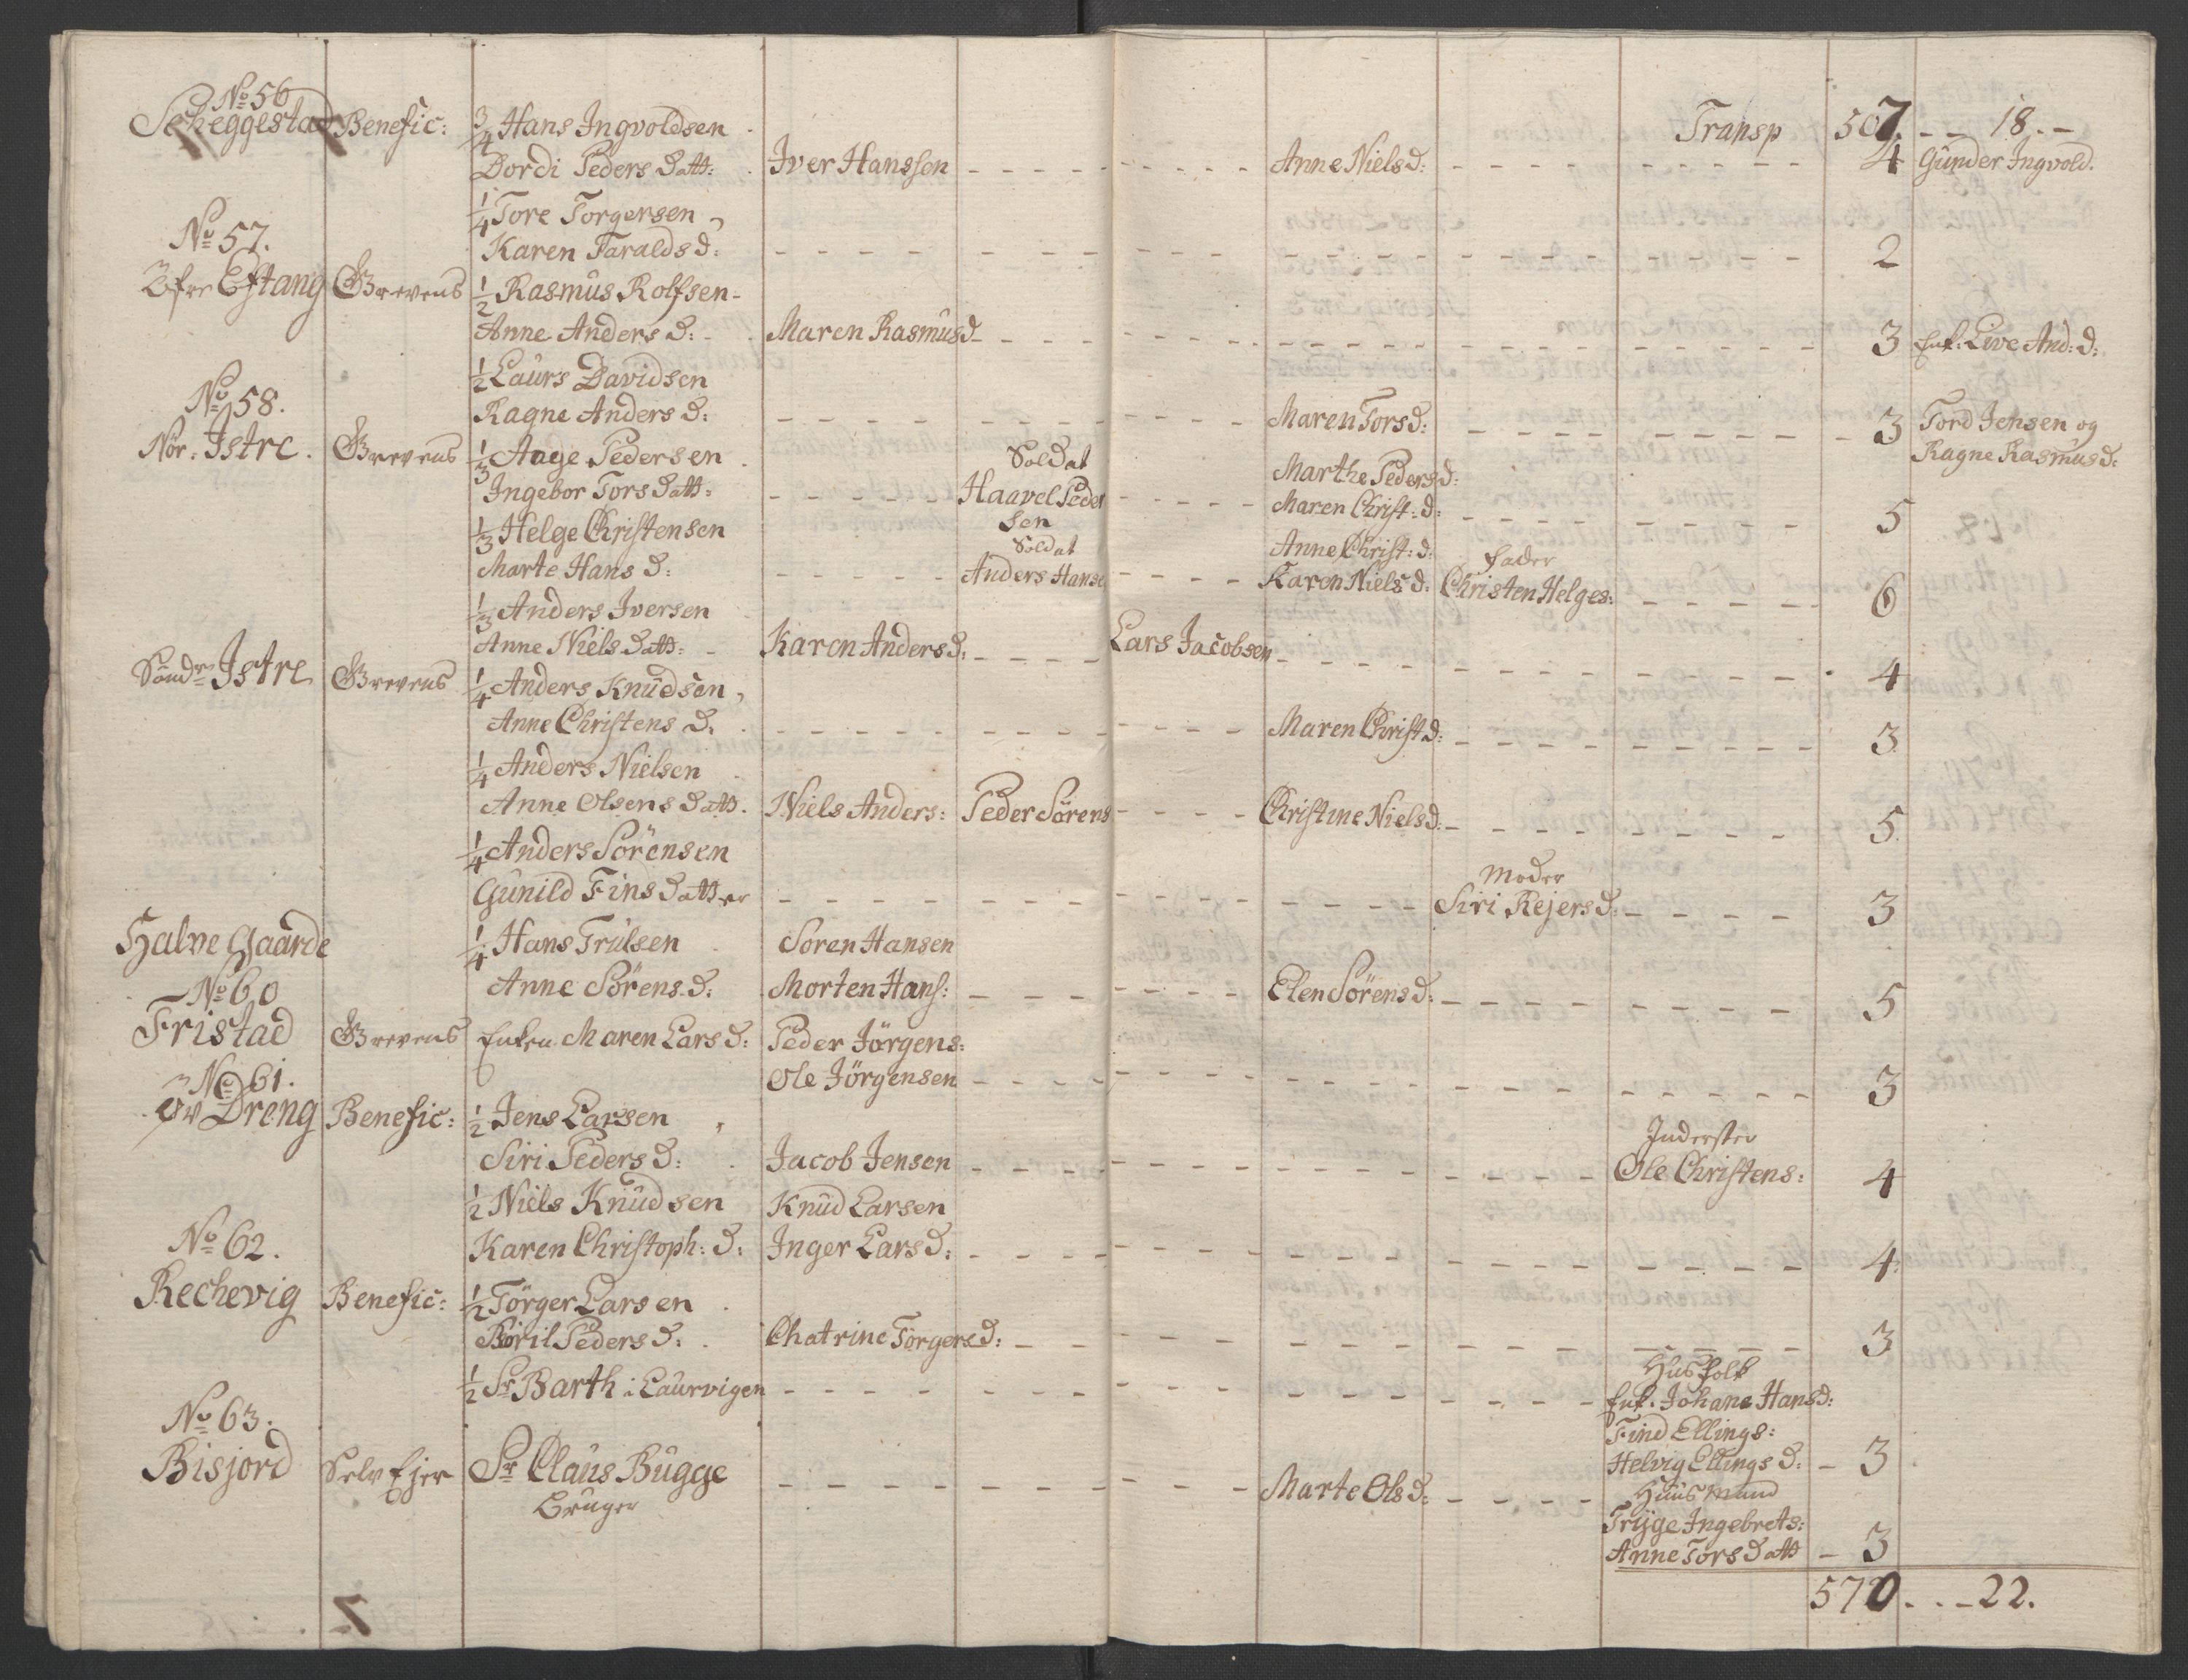 Transp 507. - - 18. -
No 56
Scheggestad Benefic: 3/4 Hans Ingvoldsen
Dordi Peders Datt: Iver Hanssen - - - Anne Niels D: - - - 4 Gunder Ingvold.
1/4 Tore Torgersen
No 57.
Karen Taralds D: - - - 2
Öfre Eftang Grevens 1/2 Rasmus Rolfsen
Anne Anders D: Maren Rasmus D - - - 3 Enk: Live And: D:
1/2 Laurs Davidsen
No 58.
Ragne Anders D: - - - Maren Tors D: - - - 3 Tord Jensen og
Ragne Rasmus D:
Nör: Istre. Grevens 1/3 Aage Pedersen Soldat Marthe Peders D:
Ingebor Tors Datt: - - - Haavel Peder - - - Maren Christ: D: - - - 5
sen
1/3 Helge Christensen Soldat Anne Christ: D: Fader
Marte Hans D: - - - Anders Hanse - - - Karen Niels D: Christen Helges: - - - 6
1/3 Anders Iversen
Anne Niels Datt: Karen Anders D: - - - Lars Jacobsen - - - 4
Söndre Istre Grevens 1/4 Anders Knudsen
Anne Christens D. - - - Maren Christ D: - - - 3
1/4 Anders Nielsen
Anne Olsens Datt. Niels Anders: Peder Sörens - - - Christine Niels D: - - - 5
1/4 Anders Sörensen
Moder
Gunild Fins Datter - - - Siri Rejers D: - - - 3
Halve Gaarde
1/4 Hans Trulsen Soren Hansen
Anne Sörens D: Morten Hans: - - - Elen Sörens D: - - - 5
No 60
Fristad Grevens Enken Maren Lars D: Peder Jörgens:
Ole Jörgensen - - - 3
No 61.
Öv Dreng Benefic: 1/2 Jens Larsen
Inderster
Siri Peders D: Jacob Jensen - - - Ole Christens: 4
1/2 Niels Knudsen Knud Larsen
Karen Christoph: D: Inger Lars D: - - - 4
No 62.
Rechevig Benefic: 1/2 Törger Larsen
Böril Peders D: Chatrine Törgers D: - - - 3
Husfolk
1/2 Sr Barth i Laurvigen - - - Enk. Johane Hans D:
Find Ellings:
Helvig Ellings D: - 3
No 63.
Bisjord Selv Ejer Sr Claus Bugge - - - Marte Ols D: - - -
Bruger
Huusmand
Tryge Ingebrets:
Anne Tors Datt - 3
570. . . - 22.
7